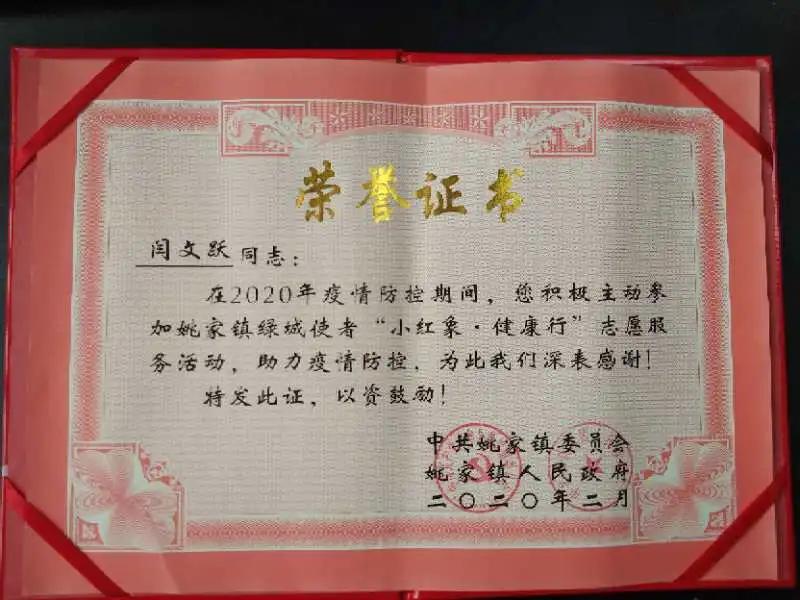 荣誉证书
闫文跃同志：
在2020年疫情防控期间，您积极主动参
加姚家镇绿城使者“小红象·健康行”志愿服
务活动，助力疫情防控，为此我们深表感谢！
特发此证，以资鼓励！
中共姚家镇委员会
姚家镇人民政府
二〇二〇年二月